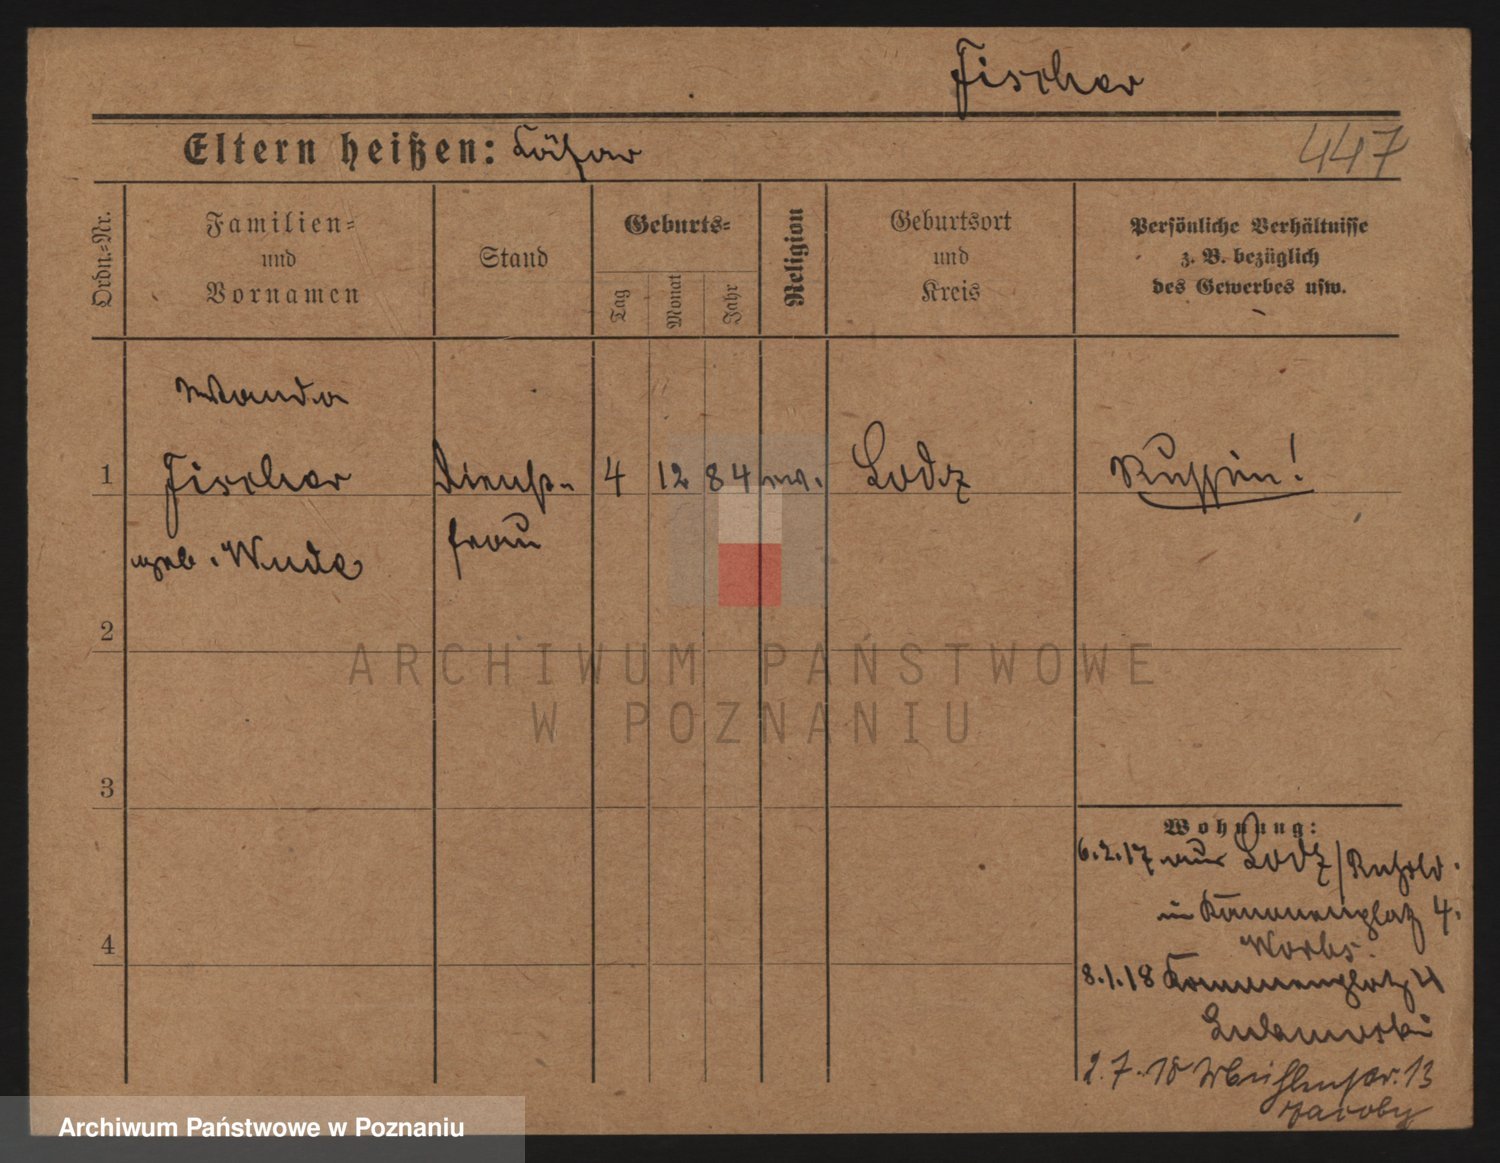 Fischer
Eltern heißen:
447
Ordn.=Nr.
Familien=
und
Vornamen
Stand
Geburts=
Tag
Monat
Jahr
Religion
Geburtsort
und
Kreis
Persönliche Verhältnisse
z. B. bezüglich
des Gewerbes usw.
Wanda
1 Fischer Dienst- 4 12 84 Lodz Russin!
geb. frau
2
ARCHIWUM PAŃSTWOWE
W POZNANIU
3
Wohnung:
6.2.17 aus Lodz /
in Kanonenplatz 4.
4
Worbs.
8.1.18 Kanonenplatz 4
2.7.18 Mühlenstr. 13
Jacoby
Archiwum Państwowe w Poznaniu